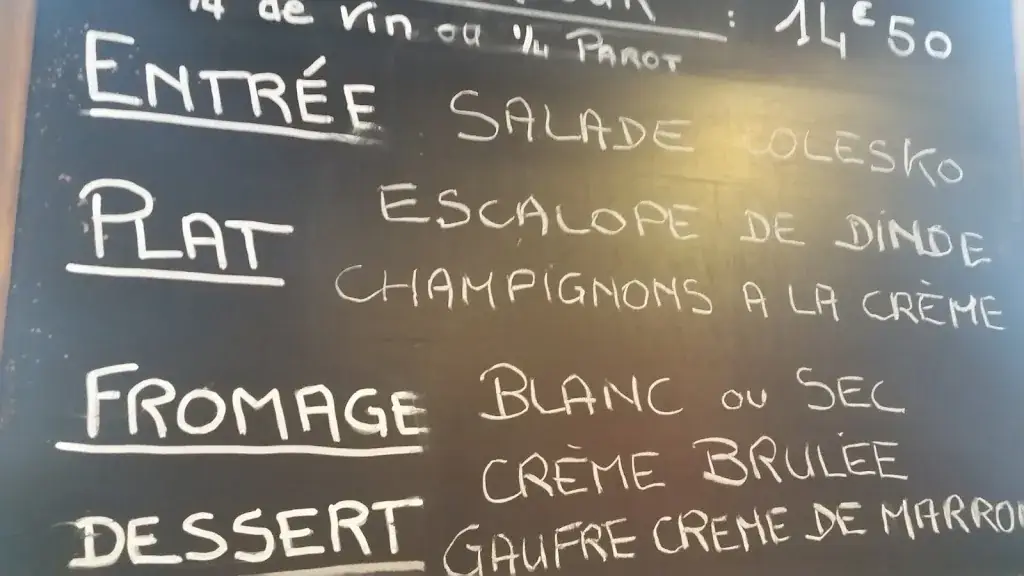 : 14€50
1/4 de vin ou 1/4 PAROT
ENTRÉE SALADE COLESKO
PLAT ESCALOPE DE DINDE
CHAMPIGNONS A LA CRÈME
FROMAGE BLANC ou SEC
CRÈME BRULÉE
DESSERT GAUFRE CREME DE MARRON